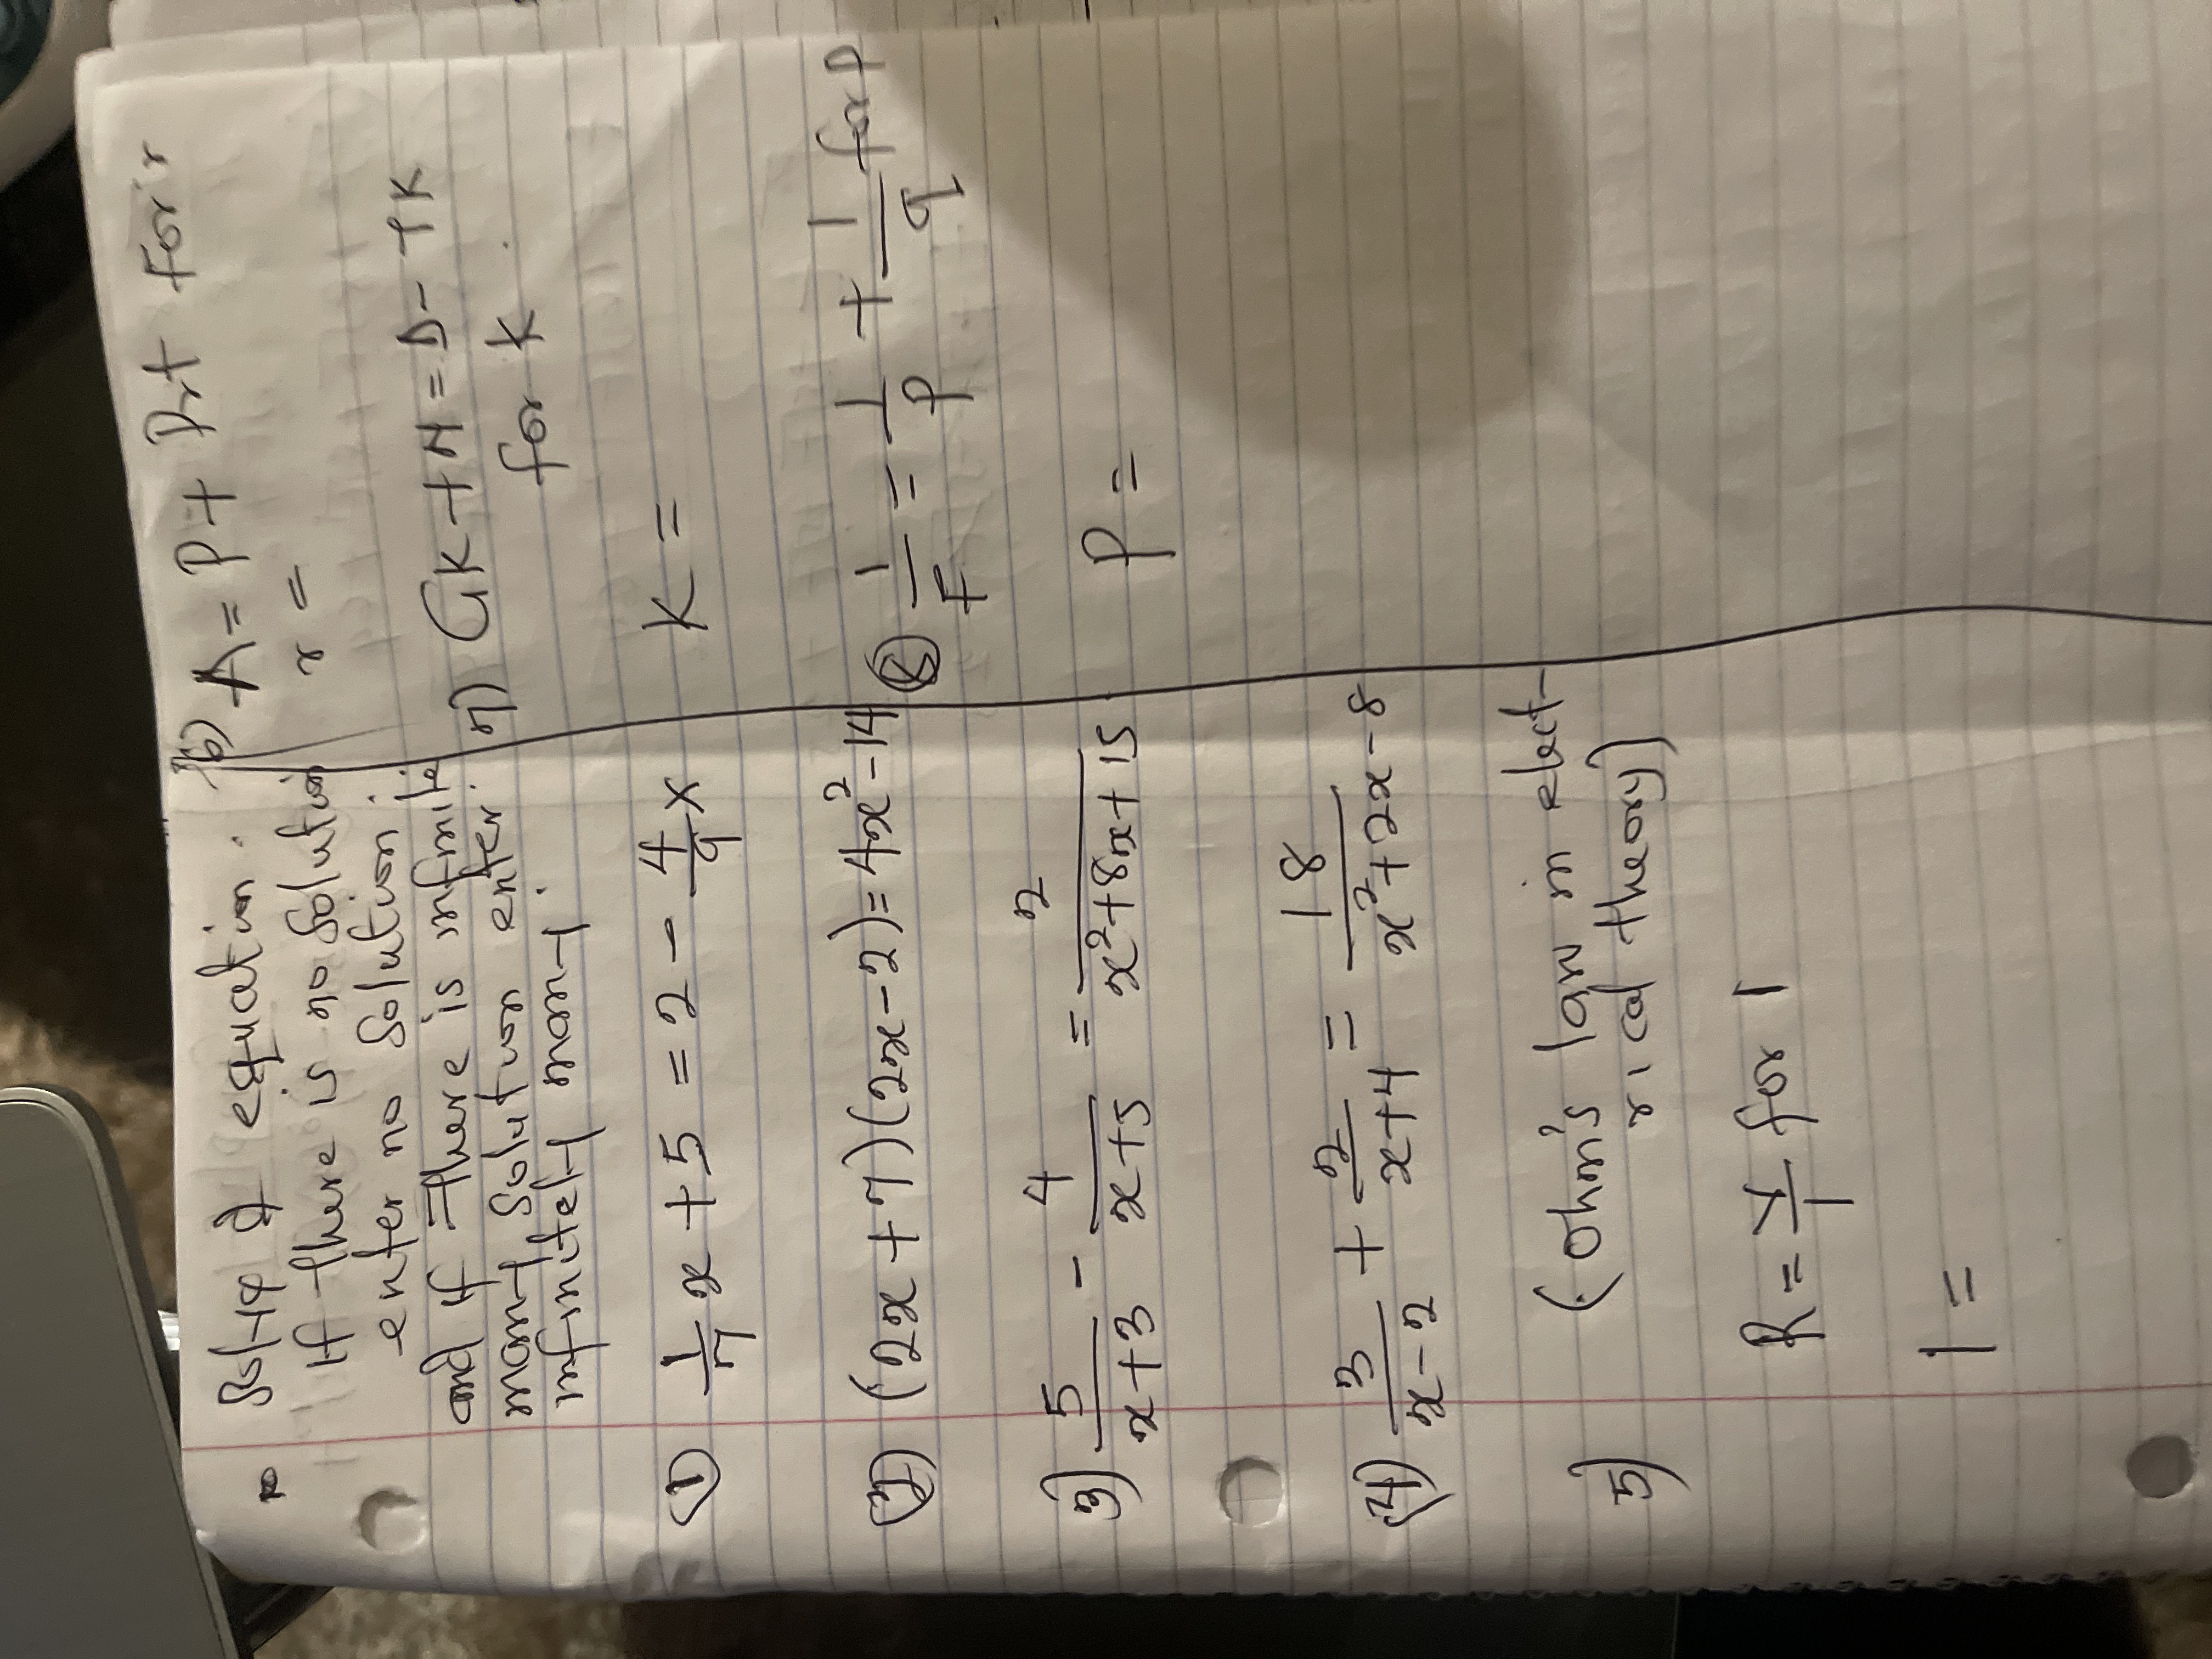 equation.
If there is no solution
enter no solution.
and if there is infinite
many solution enter.
infinitely many.
① 1/7 x + 5 = 2 - 4/9 x
2) (2x + 7)(2x - 2) = 4x² - 14
3) 5/(x+3) - 4/(x+5) = 2/(x²+8x+15)
(4) 3/(x-2) + 2/(x+4) = 18/(x²+2x-8)
5) (Ohm's law in elect-
rical theory)
R = V/I for I
I =
6) A = P + Prt for r
r =
7) GK + H = D - TK
for K
K =
⑧ 1/F = 1/P + 1/q for P
P =